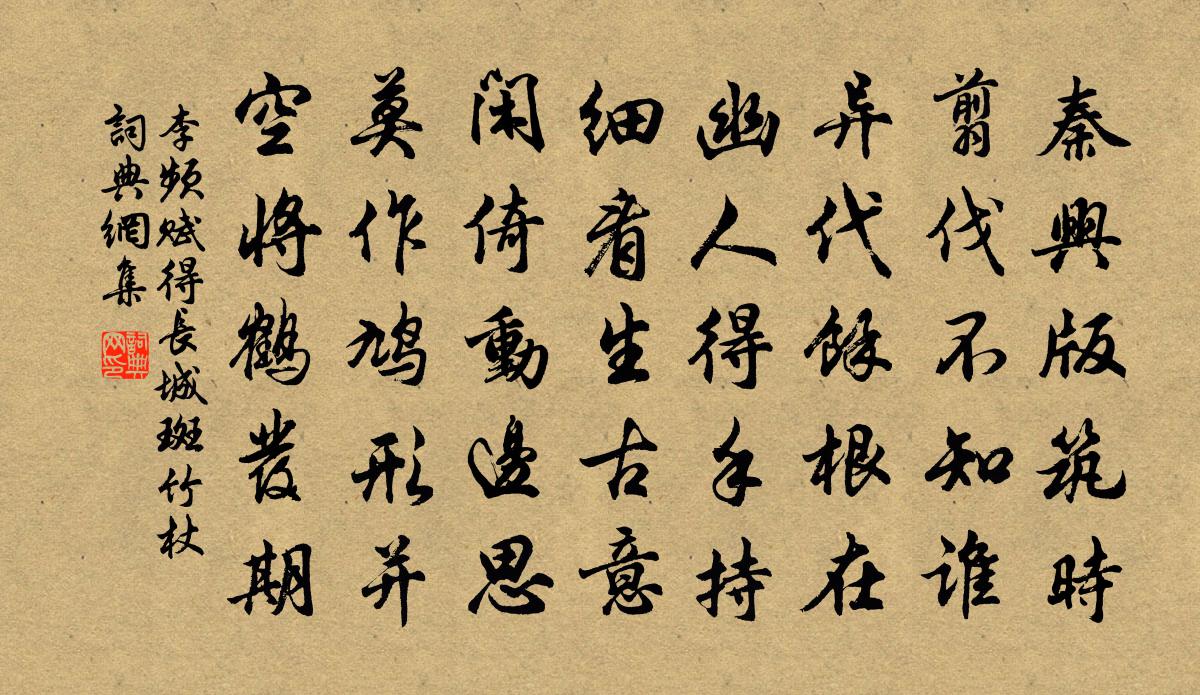 秦興版筑時
翦伐不知誰
异代餘根在
幽人得手持
細看生古意
閑倚動邊思
莫作鳩形并
空將鶴發期
李頻賦得長城斑竹杖
詞典網集
詞典网印